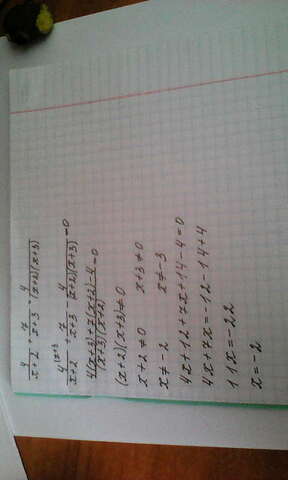 4/(x+2) + 7/(x+3) = 4/((x+2)(x+3))
4^(x+3/(x+2) + 7/(x+3) - 4/((x+2)(x+3)) = 0
(4(x+3)+7(x+2)-4)/((x+3)(x+2)) = 0
(x+2)(x+3)≠0
x+2≠0 x+3≠0
x≠-2 x≠-3
4x+12+7x+14-4=0
4x+7x=-12-14+4
11x=-22
x=-2